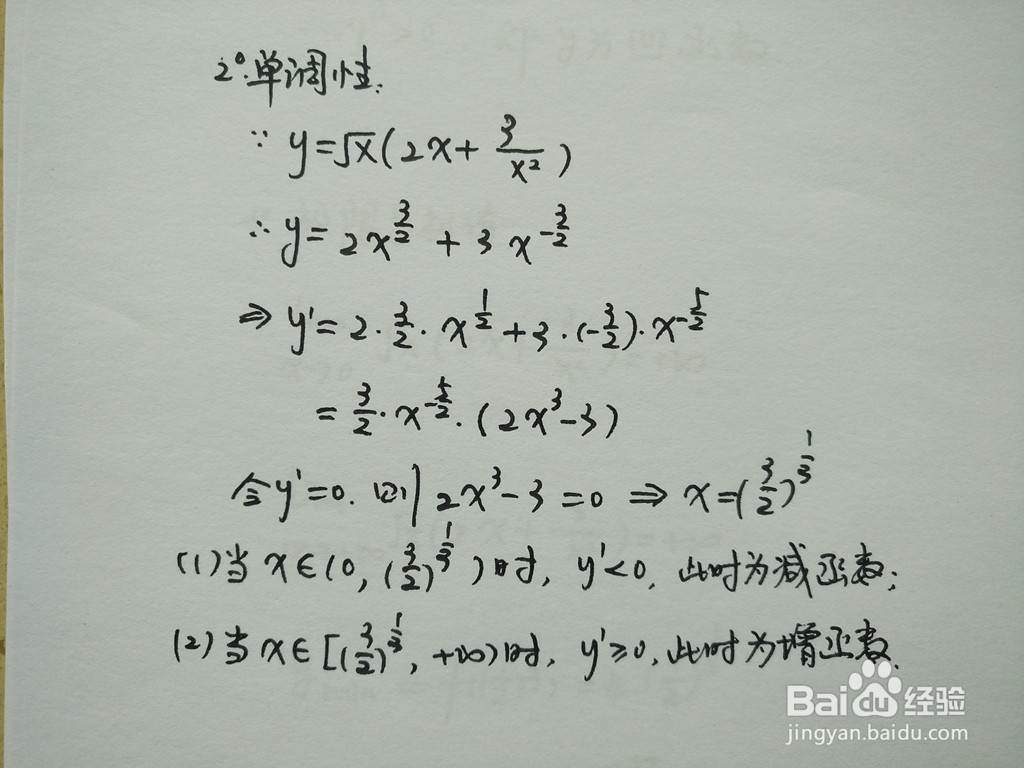 2°.单调性:
∵ y=√x(2x+3/x²)
∴ y=2x^(3/2)+3x^(-3/2)
⇒ y'=2·3/2·x^(1/2)+3·(-3/2)·x^(-5/2)
=3/2·x^(-5/2)·(2x³-3)
令y'=0.则2x³-3=0 ⇒ x=(3/2)^(1/3)
(1)当x∈(0,(3/2)^(1/3))时,y'<0,此时为减函数;
(2)当x∈[(3/2)^(1/3),+∞)时,y'≥0,此时为增函数.
Baidu经验
jingyan.baidu.com